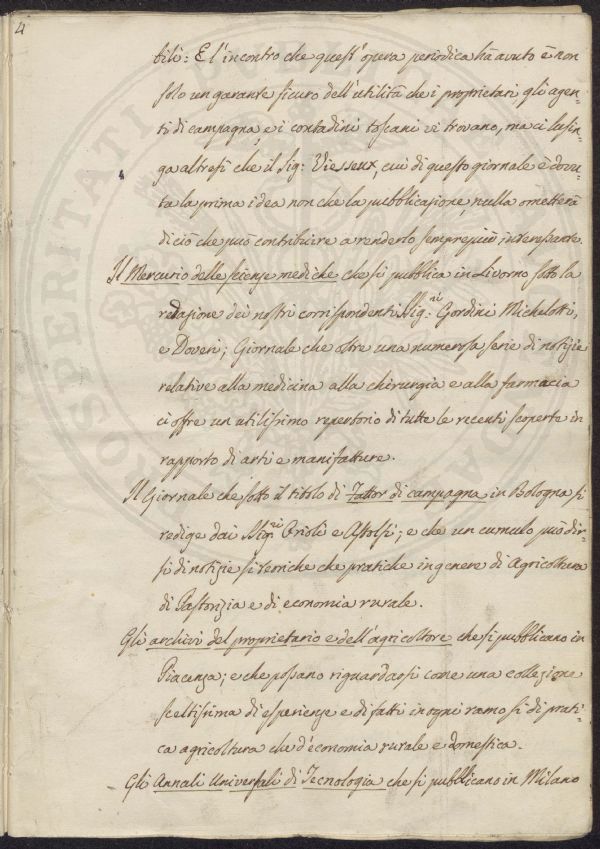 4
tili: E l'incontro che quest'opera periodica hà avuto è non
solo un garante sicuro dell'utilità che i proprietari, gli agen-
ti di campagna, e i contadini toscani vi trovano, ma ci lusin-
ga altresì che il Sig: Viesseux, cui di questo giornale è dovu-
ta la prima idea non che la pubblicazione, nulla ometterà
di ciò che può contribuire a renderlo sempre più interessante.
Il Mercurio delle scienze mediche che si pubblica in Livorno sotto la
redazione dei nostri corrispondenti SSig:ri Gordini Michelotti,
e Doveri; Giornale che oltre una numerosa serie di notizie
relative alla medicina alla chirurgia e alla farmacia
ci offre un utilissimo repertorio di tutte le recenti scoperte in
rapporto di arti e manifatture.
Il Giornale che sotto il titolo di Fattor di campagna in Bologna si
redige dai SSig:ri Orioli e Astolfi; e che un cumulo può dir-
si di notizie sì teoriche che pratiche in genere di Agricoltura
di Pastorizia e di economia rurale.
Gli archivi del proprietario e dell'agricoltore che si pubblicano in
Piacenza; e che possano riguardarsi come una collezione
sceltissima di esperienze e di fatti in ogni ramo sì di prati-
ca agricoltura che d'economia rurale e domestica.
Gli Annali Universali di Tecnologia che si pubblicano in Milano
PROSPERITATI